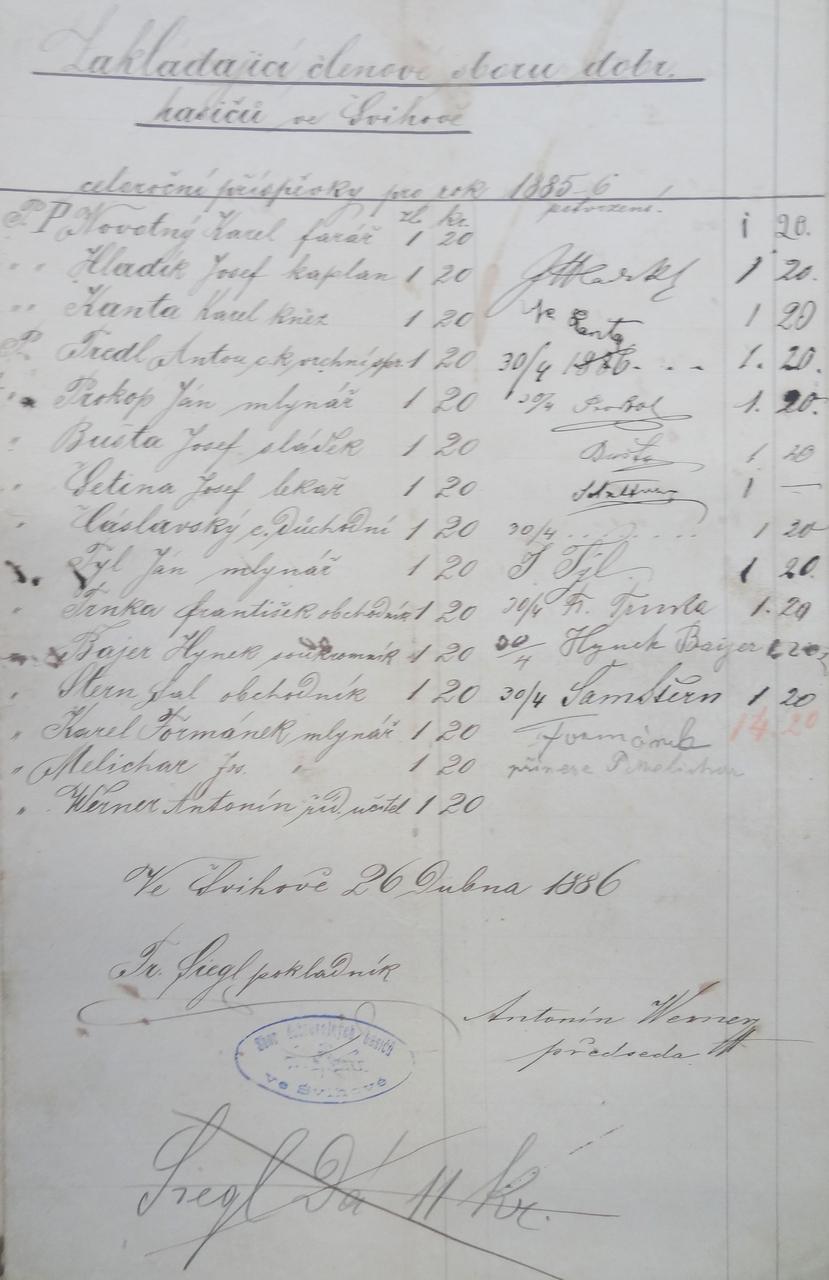 Zakládající členové sboru dobr.
hasičů ve Švihově
celoroční příspěvky pro rok 1885-6
zl. kr. potvrzení.
P. P Novotný Karel farář 1 20 1 20.
" " Hladík Josef kaplan 1 20 1 20.
" " Kanta Karel kněz 1 20 Kanta 1 20
P. Tredl Anton c.k. vrchní spr. 1 20 30/4 1886. . . 1. 20.
" Prokop Ján mlynář 1 20 30/4 Prokop 1. 20.
" Bušta Josef sládek 1 20 Bušta 1 20
" Šetina Josef lekař 1 20 1 —
" Čáslavský c. Důchodní 1 20 30/4 . . . . . . 1 20
" Tyl Ján mlynář 1 20 J Týl 1 20.
" Trnka františek obchodník 1 20 30/4 Fr. Trnka 1. 20
" Bajer Hynek soukromník 1 20 30/4 Hynek Baijer 1 20
" Stern Sal obchodník 1 20 30/4 Sam Štern 1 20
" Karel Formánek mlynář 1 20 Formánek 14. 20
" Melichar Jos. " 1 20 přinese P. Melichar
" Werner Antonín říd. učitel 1 20
Ve Švihově 26 Dubna 1886
Fr. Siegl pokladník
Antonín Werner
předseda
Sbor dobrovolných hasičů
ve Švihově
Siegl Dá 11 Kr.